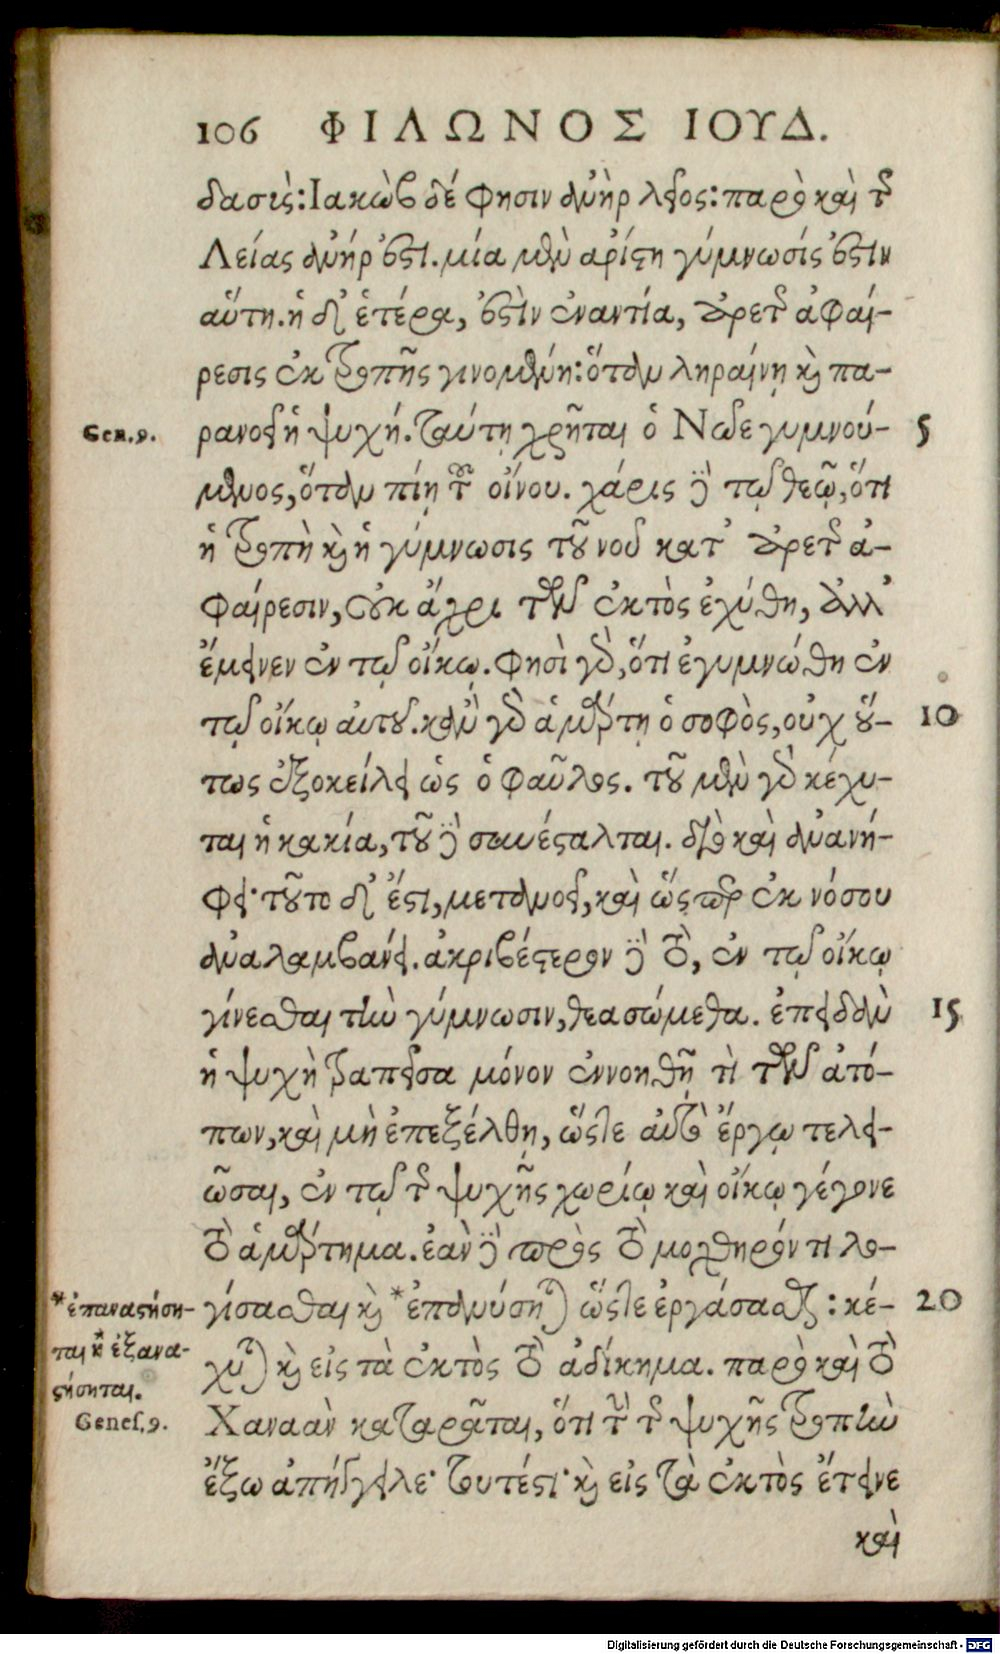 106 ΦΙΛΩΝΟΣ ΙΟΥΔ.
δασὶς: Ιακὼβ δέ φησιν ἀνὴρ λεῖος: παρὸ καὶ τῆς
Λείας ἀνήρ ἐστι. μία μὲν ἀρίστη γύμνωσίς ἐστιν
αὕτη. ἡ δ' ἑτέρα, ἐστὶν ἐναντία, ἀρετῆς ἀφαί-
ρεσις ἐκ τροπῆς γινομένη: ὅταν ληραίνῃ καὶ πα-
Gen. 9. ρανοεῖ ἡ ψυχή. ταύτῃ χρῆται ὁ Νῶε γυμνού- 5
μενος, ὅταν πίῃ τοῦ οἴνου. χάρις δὲ τῷ θεῷ, ὅτι
ἡ τροπὴ καὶ ἡ γύμνωσις τοῦ νοῦ κατ' ἀρετῆς ἀ-
φαίρεσιν, οὐκ ἄχρι τῶν ἐκτὸς ἐχύθη, ἀλλ'
ἔμεινεν ἐν τῷ οἴκῳ. φησὶ γὰρ, ὅτι ἐγυμνώθη ἐν
τῷ οἴκῳ αὐτοῦ. κἂν γὰρ ἁμάρτῃ ὁ σοφὸς, οὐχ οὕ- 10
τως ἐξοκείλει ὡς ὁ φαῦλος. τοῦ μὲν γὰρ κέχυ-
ται ἡ κακία, τοῦ δὲ συνέσταλται. διὸ καὶ ἀνανή-
φει· τοῦτο δ' ἔστι, μετανοεῖ, καὶ ὥσπερ ἐκ νόσου
ἀναλαμβάνει. ἀκριβέστερον δὲ τὸ, ἐν τῷ οἴκῳ
γίνεσθαι τὴν γύμνωσιν, θεασώμεθα. ἐπειδὰν 15
ἡ ψυχὴ τραπεῖσα μόνον ἐννοηθῇ τὶ τῶν ἀτό-
πων, καὶ μὴ ἐπεξέλθῃ, ὥστε αὐτὸ ἔργῳ τελει-
ῶσαι, ἐν τῷ τῆς ψυχῆς χωρίῳ καὶ οἴκῳ γέγονε
τὸ ἁμάρτημα. ἐὰν δὲ πρὸς τὸ μοχθηρόν τι λο-
*ἐπαναστήση- γίσασθαι καὶ *ἐπανύσηται ὥστε ἐργάσασθαι: κέ- 20
ται ἢ *ἐξανα- χυται καὶ εἰς τὰ ἐκτὸς τὸ ἀδίκημα. παρὸ καὶ τὸ
στήσηται.
Genes. 9. Χαναὰν καταρᾶται, ὅτι τὴν τῆς ψυχῆς τροπὴν
ἔξω ἀπήγγειλε· τουτέστι· καὶ εἰς τὰ ἐκτὸς ἔτεινε
καὶ
Digitalisierung gefördert durch die Deutsche Forschungsgemeinschaft - DFG